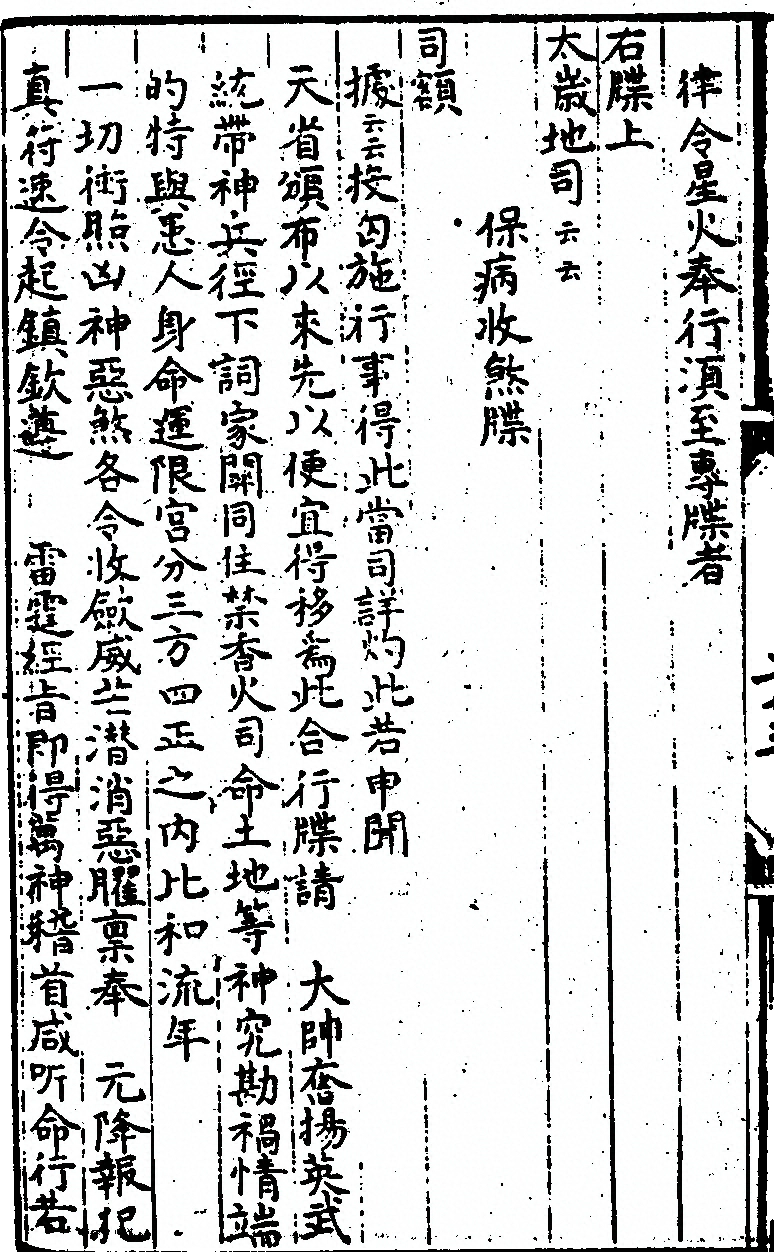 律令星火奉行湏至專牒者
右牒上
太歳地司云云
保病收煞牒
司額
據云云投匃施行事得此當司詳灼此若申聞
元省頒布以來先以便宜得移爲此合行牒請 大帥奮揚英武
統帶神兵徑下詞家關同住禁香火司命土地等神究勘禍情端
的特與患人身命運限宮分三方四正之内比和流年
一切衝照凶神惡煞各令收歛威芒潜消惡臞禀奉 元降報犯
真符速令起鎮欽遵 雷霆經旨即得萬神稽首咸听命行若